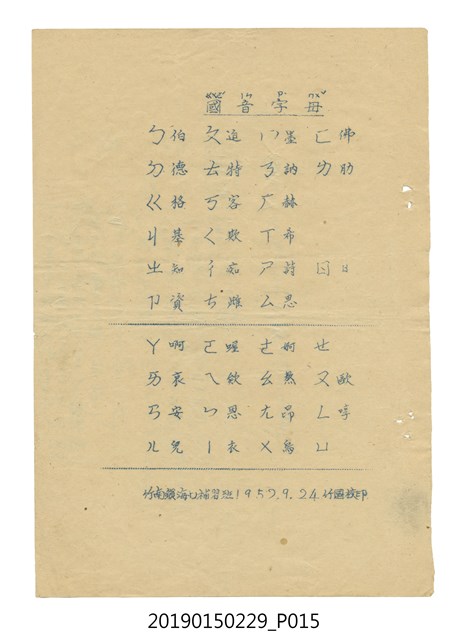 國音字母
ㄅ伯 ㄆ迫 ㄇ墨 ㄈ佛
ㄉ德 ㄊ特 ㄋ訥 ㄌ肋
ㄍ格 ㄎ客 ㄏ赫
ㄐ基 ㄑ欺 ㄒ希
ㄓ知 ㄔ痴 ㄕ詩 ㄖ日
ㄗ資 ㄘ雌 ㄙ思
ㄚ啊 ㄛ喔 ㄜ ㄝ
ㄞ哀 ㄟ欸 ㄠ熬 ㄡ歐
ㄢ安 ㄣ恩 ㄤ昂 ㄥ
ㄦ兒 ㄧ衣 ㄨ烏 ㄩ
竹南鎮海口補習班1957.9.24竹國校印
20190150229_P015